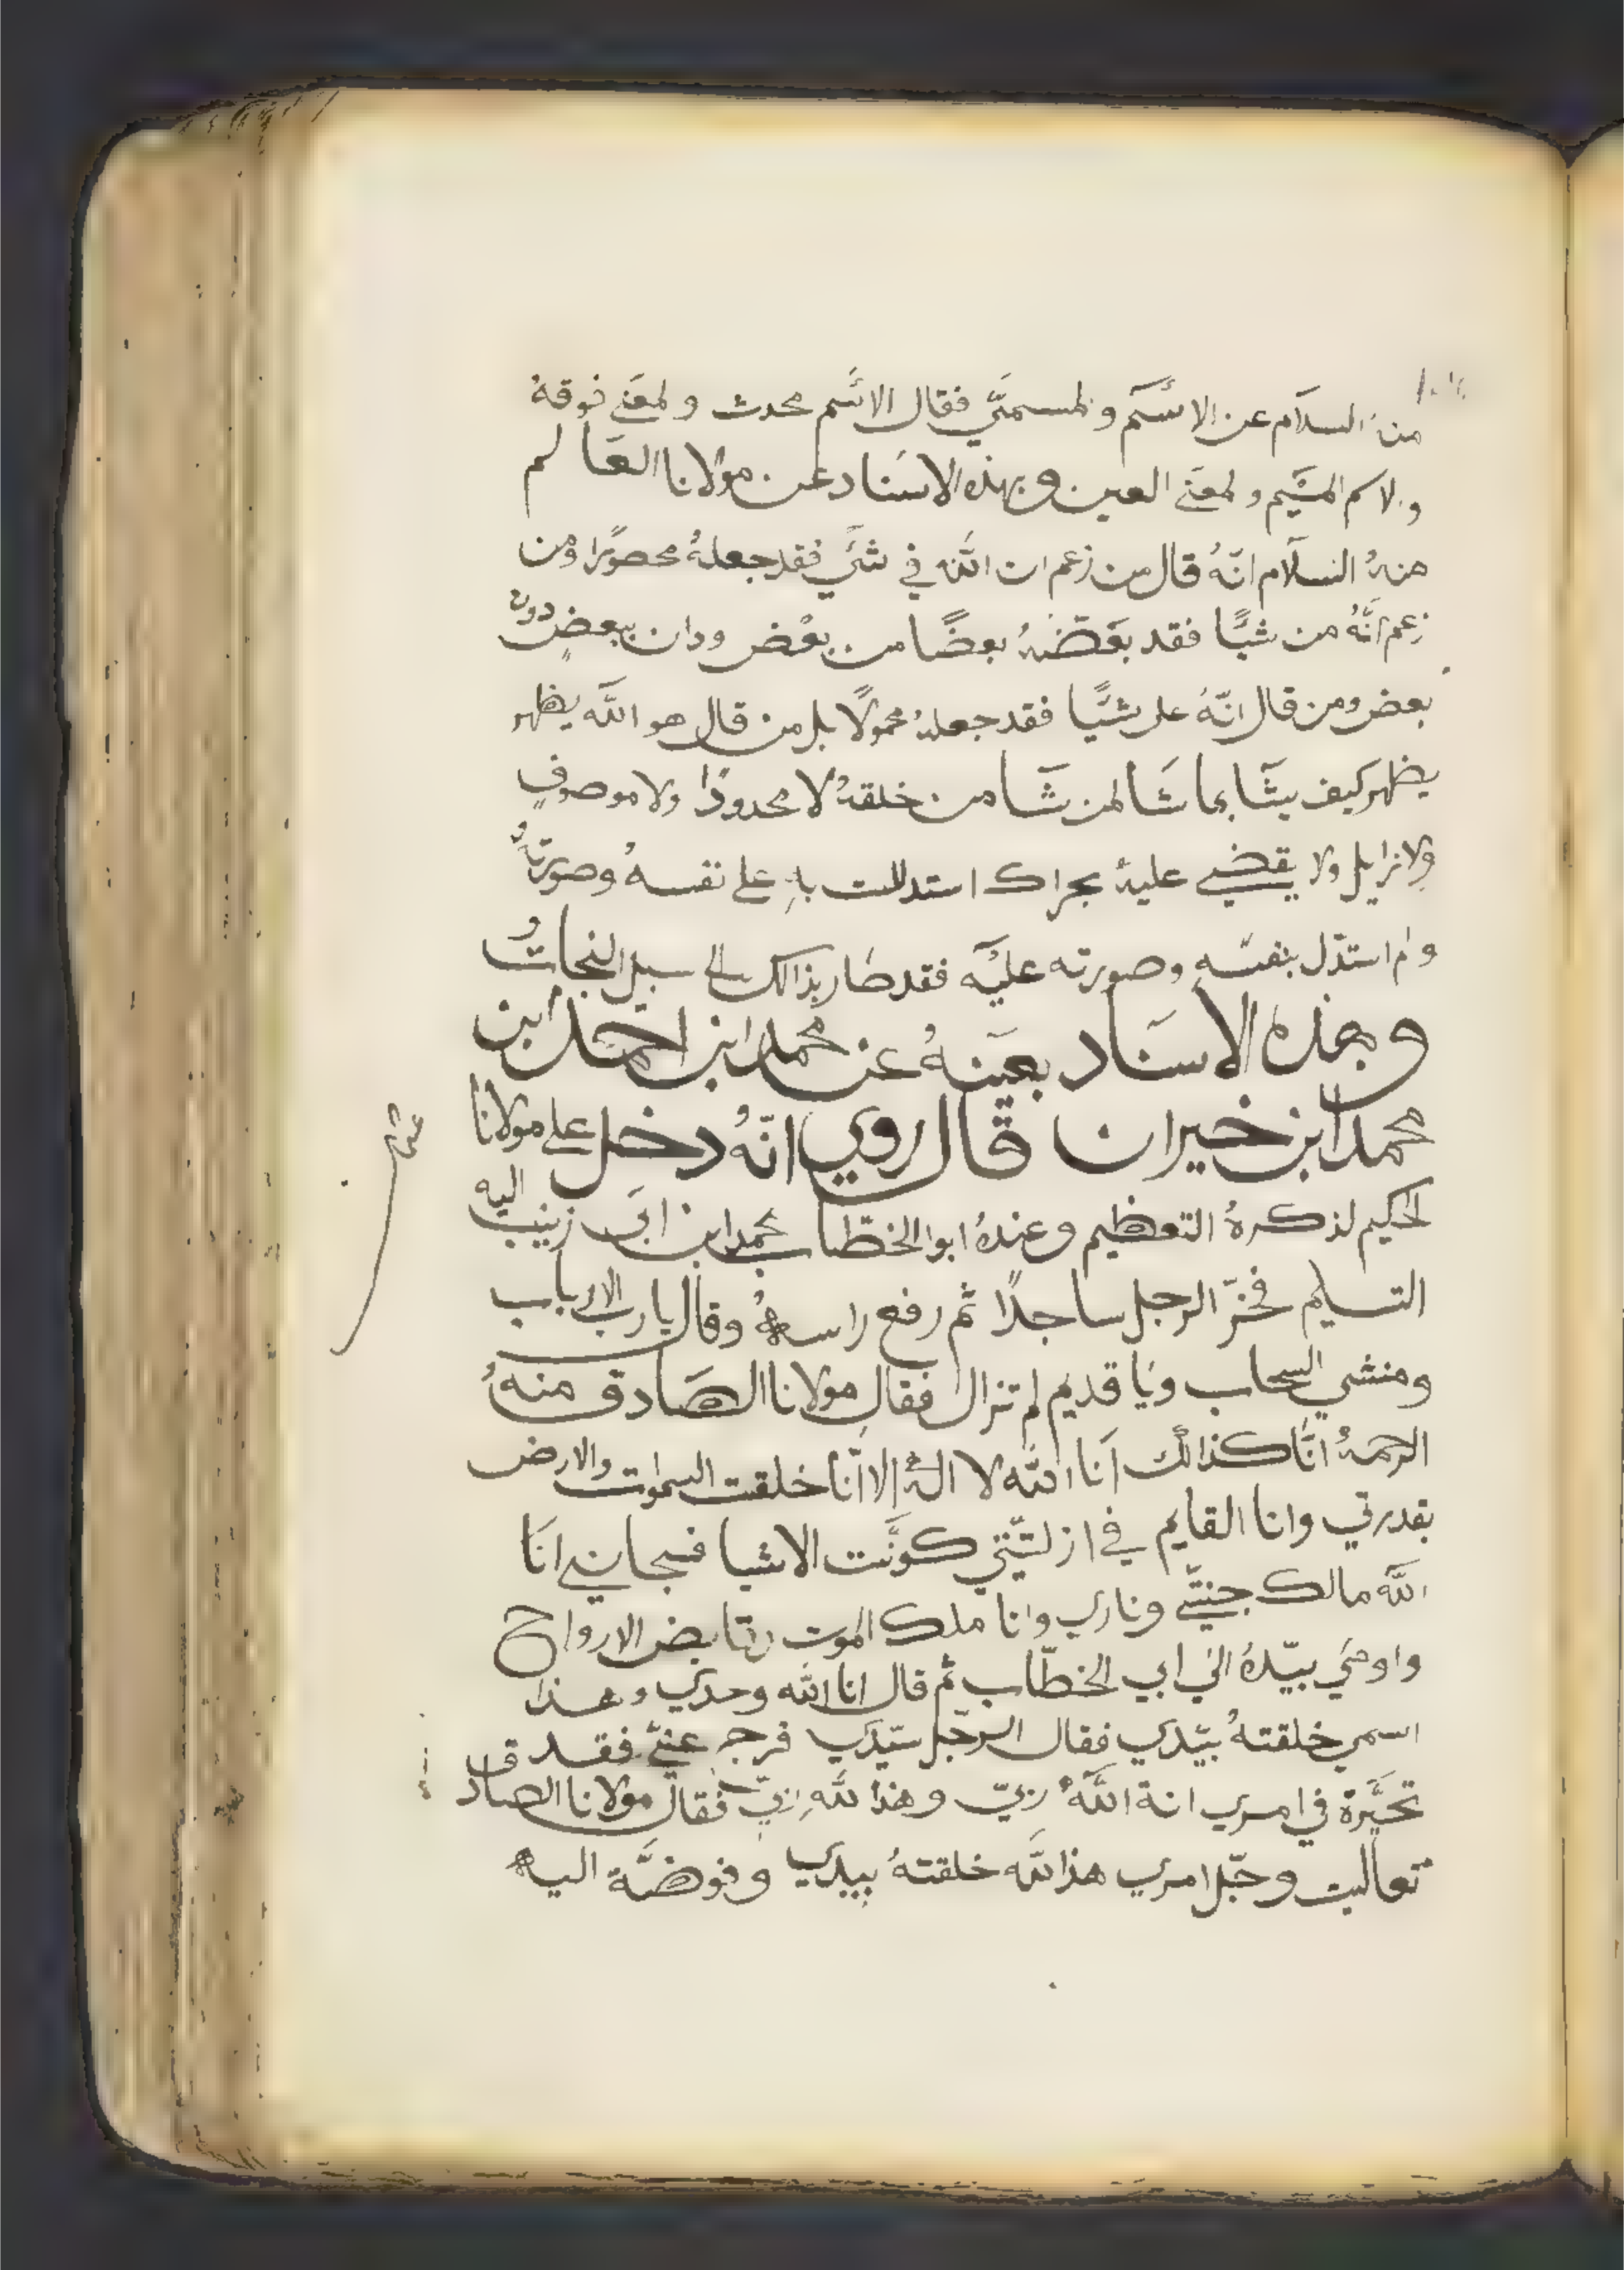 منه السلام عن الاسم والمسمى فقال الاسم محدث والمعنى فوقه
والاسم الميم والمعنى العين وبهذه الاسناد عن مولانا العالم
منه السلام انّهُ قال من زعم ان الله في شيً فقد جعلهُ محصورًا ومن
زعم انّهُ من شيًا فقد بعّضهُ بعضًا من بعض ودان ببعضٍ دون
بعض ومن قال انّهُ على شيًا فقد جعلهُ محمولًا بل من قال هو الله يظهر
يظهر كيف يشا بما شا لمن شا من خلقهُ لا محدودًا ولا موصوفٍ
ولا نزايل ولا يقضي عليهُ بجراك استدللت بهِ على نفسهُ وصورتهُ
استدّل بنفسه وصورته عليه فقد طار بذالك الى سبل النجاتُ
وبهذه الاسناد بعينهُ عن محمد ابن احمد ابن
محمد ابن خيران قال روي انّهُ دخل على مولانا
الحكيم لذكرهُ التعظيم وعندهُ ابوا الخطّاب محمد ابن ابي زينب اليه
التسليم فخرّ الرجل ساجدًا ثم رفع راسهُ وقال يا رب الارباب
ومنشي السحاب ويا قديم لم تزال فقال مولانا الصادق منهُ
الرحمهُ انّا كذالك انا الله لا الهُ الا انا خلقت السموات والارض
بقدرتي وانا القايم في ازليّتي كوّنت الاشيا فسبحاني انا
الله مالك جنتّي وناري وانا ملك الموت وقابض الارواح
واومي بيّدهُ الي ابي الخطّاب ثم قال انا الله وحدي وهذا
اسمي خلقتهُ بيّدي فقال الرجل سيّدي فرجه عنّي فقد
تحيّرة في امري انة اللهُ ربيّ وهذا لله ربيّ فقال مولانا الصادق
تعاليت وجّل امري هذا لله خلقتهُ بيدي وفوضّة اليه